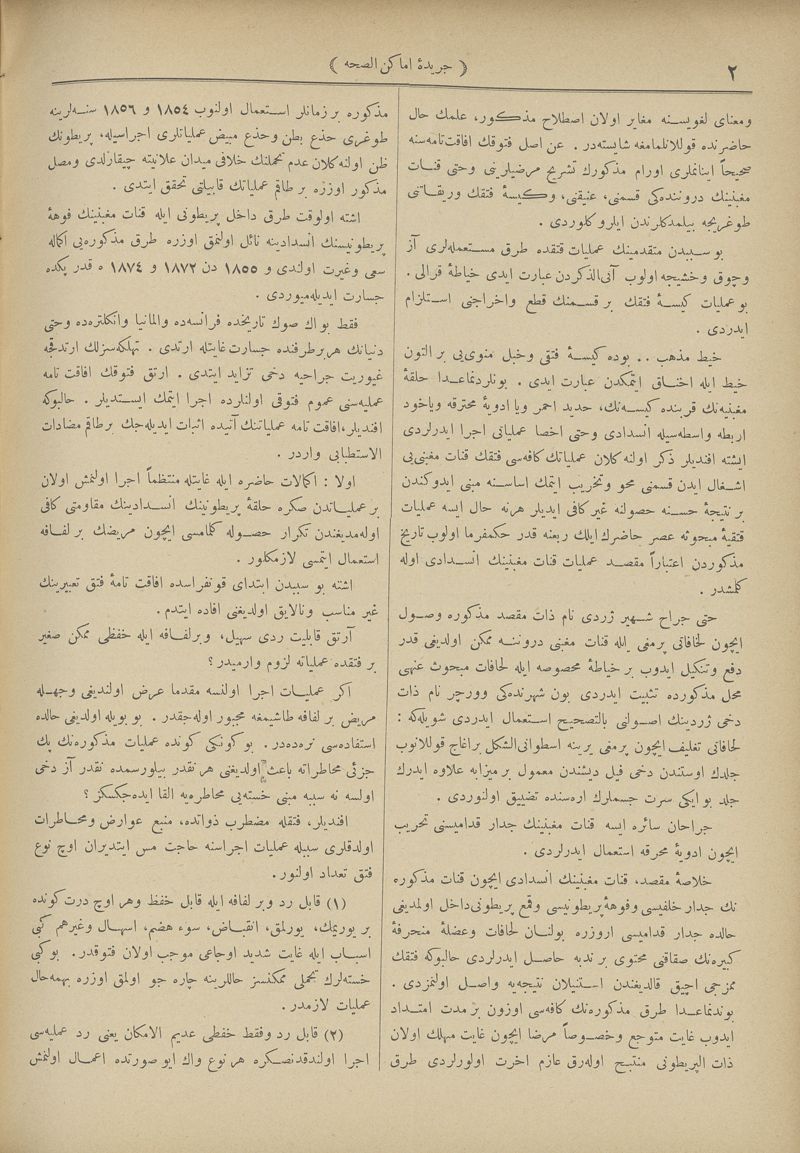 ٢
﴿ جريدۀ اماكن الصحه ﴾
ومعناى لغويسنه مغاير اولان اصطلاح مذكور، علمك حال
حاضرنده قوللانلمامغه شايسته‌در . عن اصل فتوقك افاقت‌تامه‌سنه
صحيحاً اينانملرى اورام مذكورك تشريح مرضيلرينى وحتى قنات
مغبنينك دروننده‌كى قسمنى، عنيقنى، وكيسۀ فتقك وريقاتنى
طوغريجه بيلمدكلرندن ايلرو كلوردى .
بو سببدن متقدمينك عمليات فتقده طرق مستعمله‌لرى آز
وچوق وخشيجه اولوب آتى‌الذكردن عبارت ايدى خياطۀ قرالى .
بو عمليات كيسۀ فتقك بر قسمنك قطع واخراجنى استلزام
ايدردى .
خيط مذهب .. بوده كيسۀ فتقى وحبل منوى‌يى بر التون
خيط ايله اختاق ايتمكدن عبارت ايدى . بونلردنماعدا حلقۀ
مغبنيه‌نك قربنده كيسه‌نك، حديد احمر ويا ادويۀ محترقه وياخود
اربطه واسطه‌سيله انسدادى وحتى اخصا عملياتى اجرا ايدرلردى
ايشته افنديلر ذكر اولنه كلان عملياتك كافه‌سى فتقك قنات مغبنى‌يى
اشغال ايدن قسمنى محو وتخريب ايتمك اساسنه مبنى ايدوكندن
بر نتيجۀ حسنه حصولنه غير كافى ايديلر هرنه حال ايسه عمليات
فتقيۀ مبحوثه عصر حاضرك‌ايلك ربعنه قدر حكمفرما اولوب تاريخ
مذكوردن اعتباراً مقصد عمليات قنات مغبنينك انسدادى اوله
كلمشدر .
حتى جراح شهير ژردى نام ذات مقصد مذكوره وصول
ايچون لحافاتى پرمغى ايله قنات مغبنى دروننه ممكن اولديغى قدر
دفع وتنكيل ايدوب بر خياطۀ مخصوصه ايله لحافات مبحوث عنهى
محل مذكورده تثبيت ايدردى بون شهرنده‌كى وورچر نام ذات
دخى ژردينك اصولنى بالتصحيح استعمال ايدردى شويله‌كه :
لحافاتى تغليف ايچون پرمغى يرينه اسطوانى‌الشكل براغاج قوللانوب
جلدك اوستندن دخى فيل ديشندن معمول بر ميزابه علاوه ايدرك
جلد بو ايكى سرت جسملرك اره‌سنده تضييق اولنوردى .
جراحان سائره ايسه قنات مغبنينك جدار قداميسنى تخريب
ايچون ادويۀ محرقه استعمال ايدرلردى .
خلاصۀ مقصد، قنات مغبنينك انسدادى ايچون قنات مذكوره
نك جدار خلفيسى وفوهۀ‌پريطونيسى وقع پريطونى‌داخل اولمديغى
حالده جدار قداميسى اروزره بولنان لحافات وعضلۀ منحرفۀ
كبيره‌نك صقاقنى محتوى بر ندبه حاصل ايدرلردى حالبوكه فتقك
ممزجى اچيق قالديغندن استنيلان نتيجه‌يه واصل اولنمزدى .
بوندنماعدا طرق مذكوره‌نك كافه‌سى اوزون بر مدت امتداد
ايدوب غايت متوجع وخصوصاً مرضا ايچون غايت مهلك اولان
ذات البريطونى منتبج اوله‌رق عازم اخرت اولورلردى طرق
مذكوره بر زمانلر استعمال اولنوب ١٨٥٤ و ١٨٥٦ سنه‌لرينه
طوغرى حذع بطن وحذع مبيض عملياتلرى اجراسيله، پريطونك
ظن اولنه‌كلان عدم تحملنك خلافى ميدان علانيته چيقارلدى ومصل
مذكور اوزره بر طاقم عملياتك قابليتى تحقق ايتدى .
اشته اولوقت طرق داخل پريطونى ايله قنات مغبنينك فوهۀ
پريطونيسنك انسدادينه نائل اولنمق اوزره طرق مذكوره‌يى اكماله
سعى وغيرت اولندى و ١٨٥٥ دن ١٨٧٢ و ١٨٧٤ ه قدر پكده
جسارت ايديله‌ميوردى .
فقط بو اك صوك تاريخده فرانسه‌ده والمانيا وانكلتره‌ده وحتى
دنيانك هربرطرفنده جسارت غايتله ارتدى . تهلكه‌سزلك ارتدقجه
غيوريت جراحيه دخى تزايد ايتدى . ارتق فتوقك افاقت تامه
عمليه‌سنى عموم فتوقى اولنلرده اجرا ايتمك ايستديلر . حالبوكه
افنديلر، افاقت تامه عملياتنك آتيده اثبات ايديله‌جك برطاقم مضادات
الاستطبابى واردر .
اولا : اكمالات حاضره ايله غايتله منتظماً اجرا اولنمش اولان
بر عملياتدن صكره حلقۀ پريطونينك انسدادينك مقاومتى كافى
اوله‌مديغندن تكرار حصوله كلمامسى ايچون مريضك بر لفافه
استعمال ايتمسى لازمكلور .
اشته بو سببدن ابتداى قونفرانسده افاقت تامۀ فتق تعبيرينك
غير مناسب ونالايق اولديغنى افاده ايتدم .
آرتق قابليت ردى سهيل، وبر لفافه ايله حفظى ممكن صغير
بر فتقده عملياته لزوم وارميدر؟
اكر عمليات اجرا اولنسه مقدما عرض اولنديغى وجهله
مريض بر لفافه طاشيمغه مجبور اوله‌جقدر . بو بويله اولديغى حالده
استفاده‌سى نره‌ده‌در . بو كونكى كونده عمليات مذكوره‌نك پك
جزئى مخاطراته باعث اولديغنى هر نقدر بيلورسه‌مده نقدر آز دخى
اولسه نه سببه مبنى خسته‌يى مخاطره‌يه القا ايده‌جكسكز ؟
افنديلر، فتقله مضطرب ذواتده، منبع عوارض ومخاطرات
اولدقلرى سببله عمليات اجراسنه حاجت مس ايتديران اوچ نوع
فتق تعداد اولنور .
(١) قابل رد وبر لفافه ايله قابل حفظ وهر اوچ درت كونده
بر يوريمك، يورلمق، انقباض، سوء هضم، اسهال وغيرهم كى
اسباب ايله غايت شديد اوجاعى موجب اولان فتوقدر . بو كى
خسته‌لرك تحملى ممكنسز حاللرينه چاره جو اولمق اوزره بهمه‌حال
عمليات لازمدر .
(٢) قابل رد وفقط حفظى عديم الامكان يعنى رد عمليه‌سى
اجرا اولندقدنصكره هر نوع واك ايو صورتده اعمال اولنمش